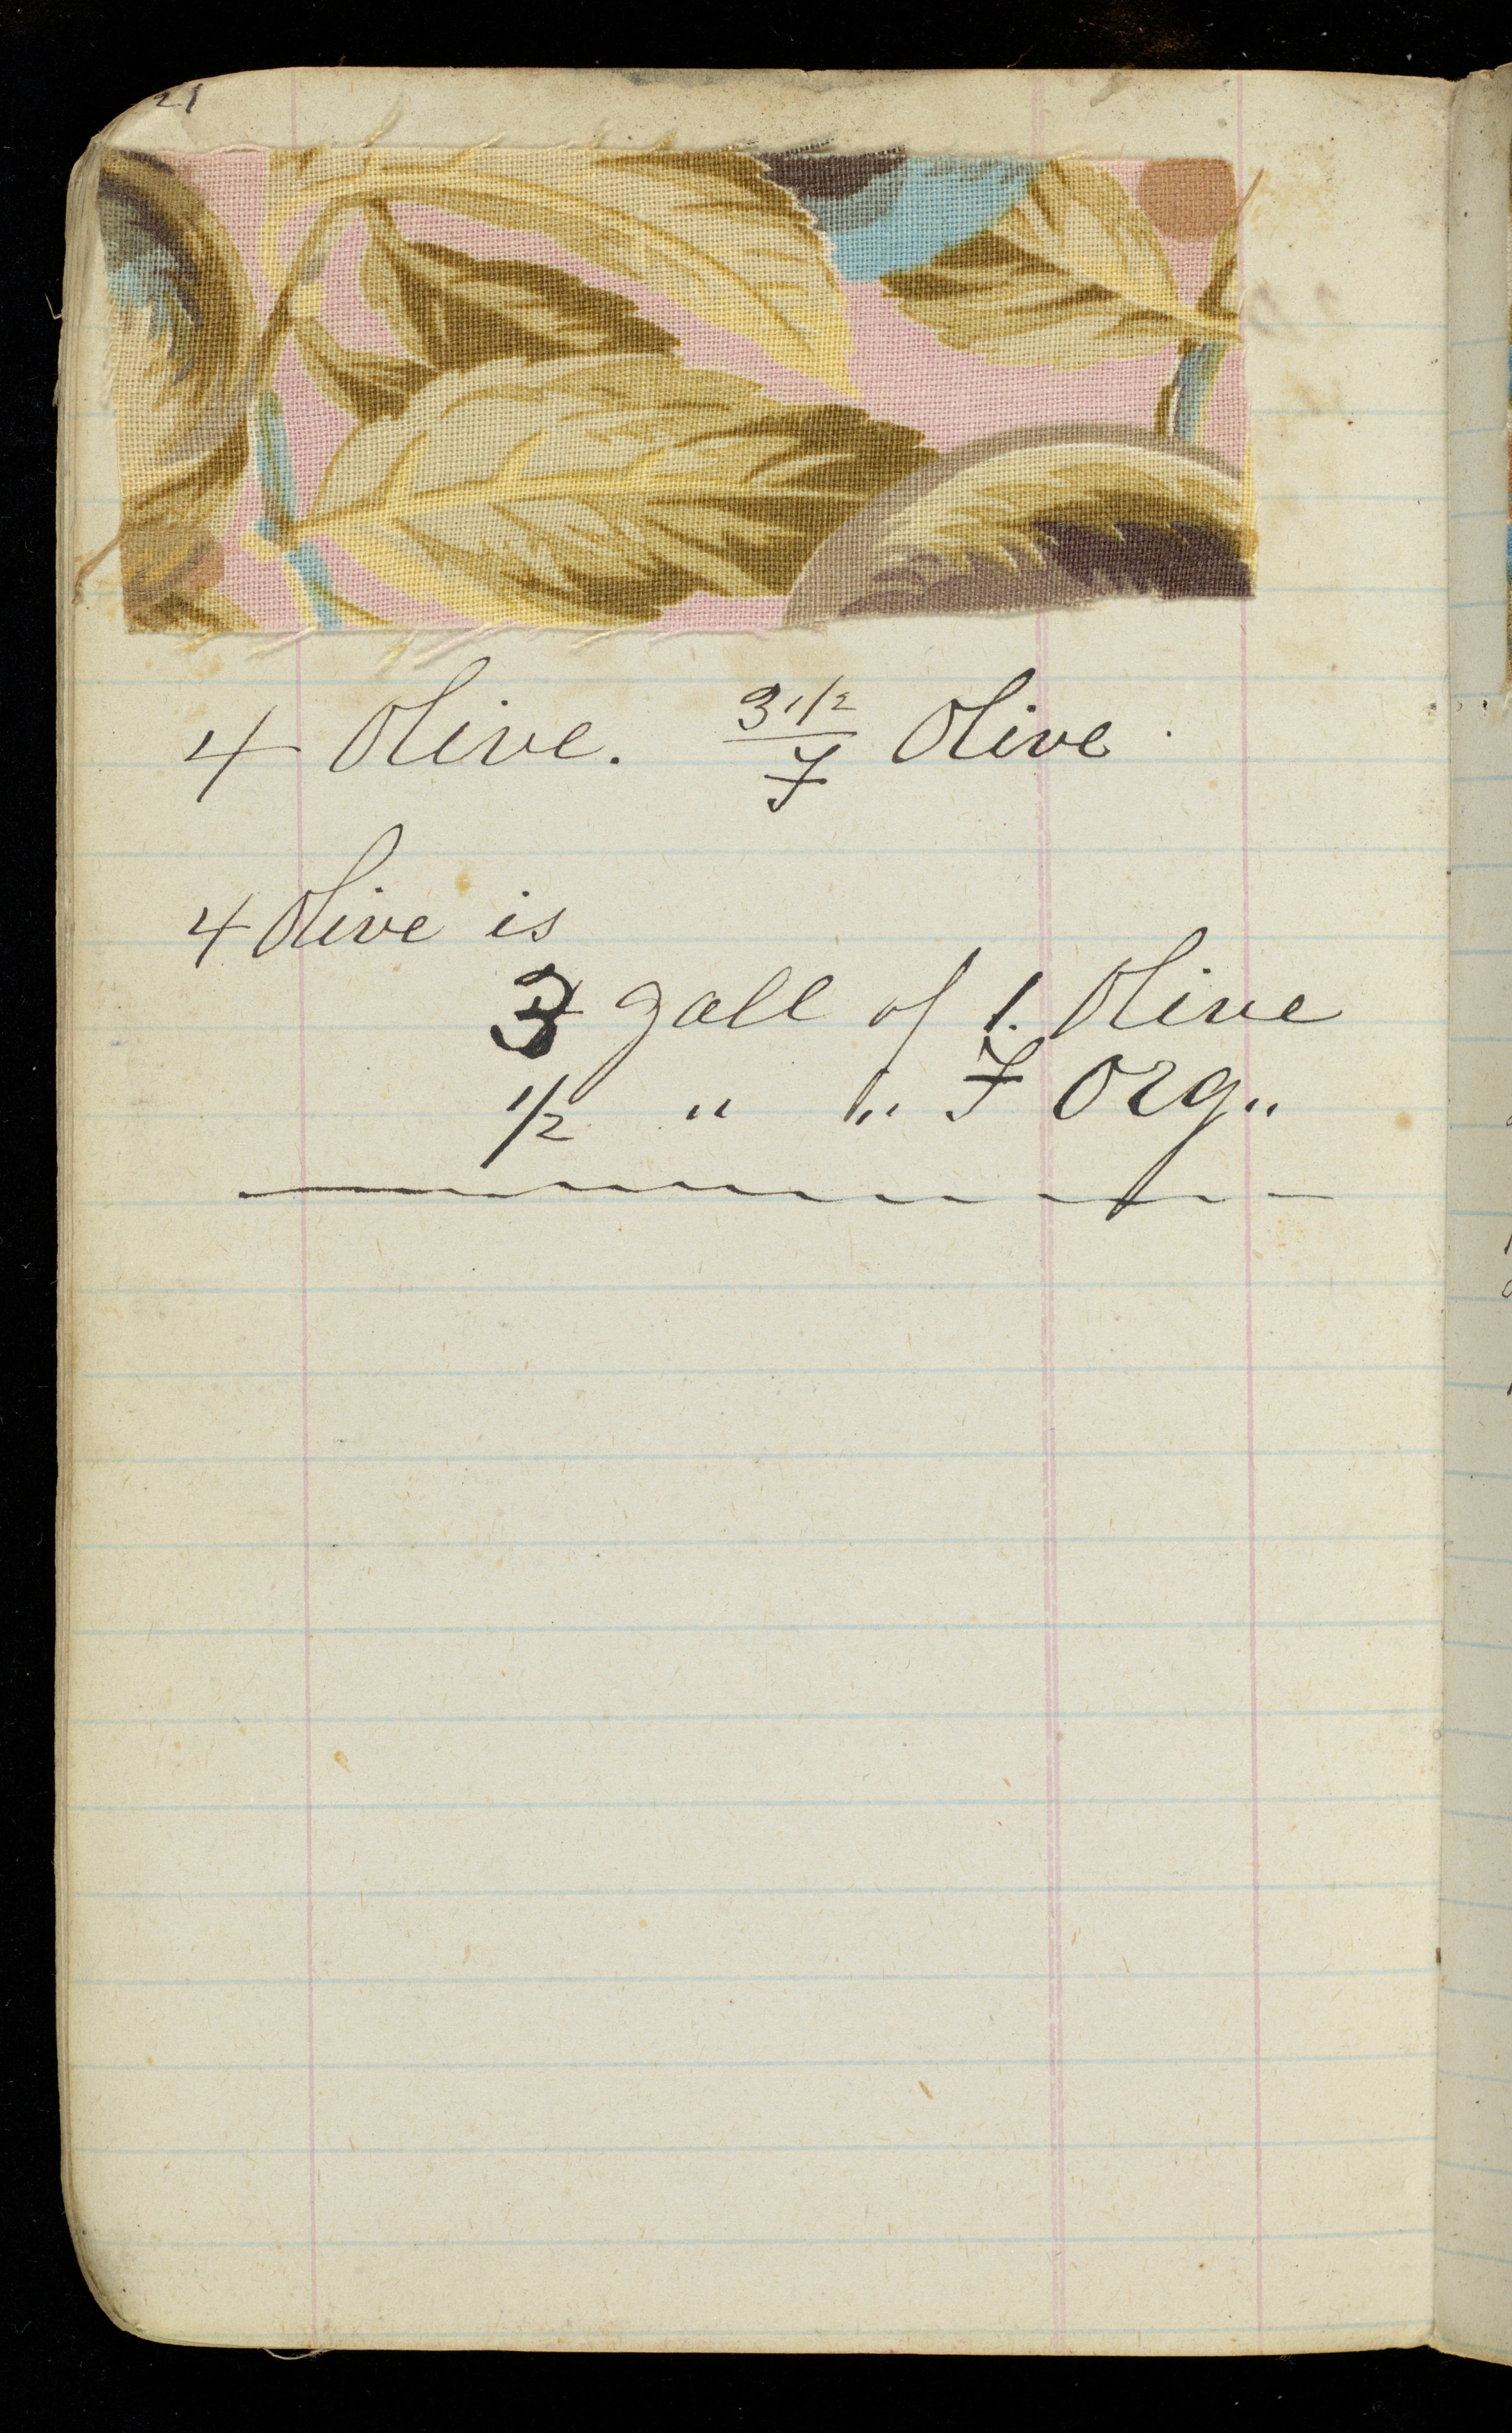 21
4 Olive. 3 1/2 / F Olive.
4 Olive is
3 gall of 1. Olive
1/2 " " F Org..